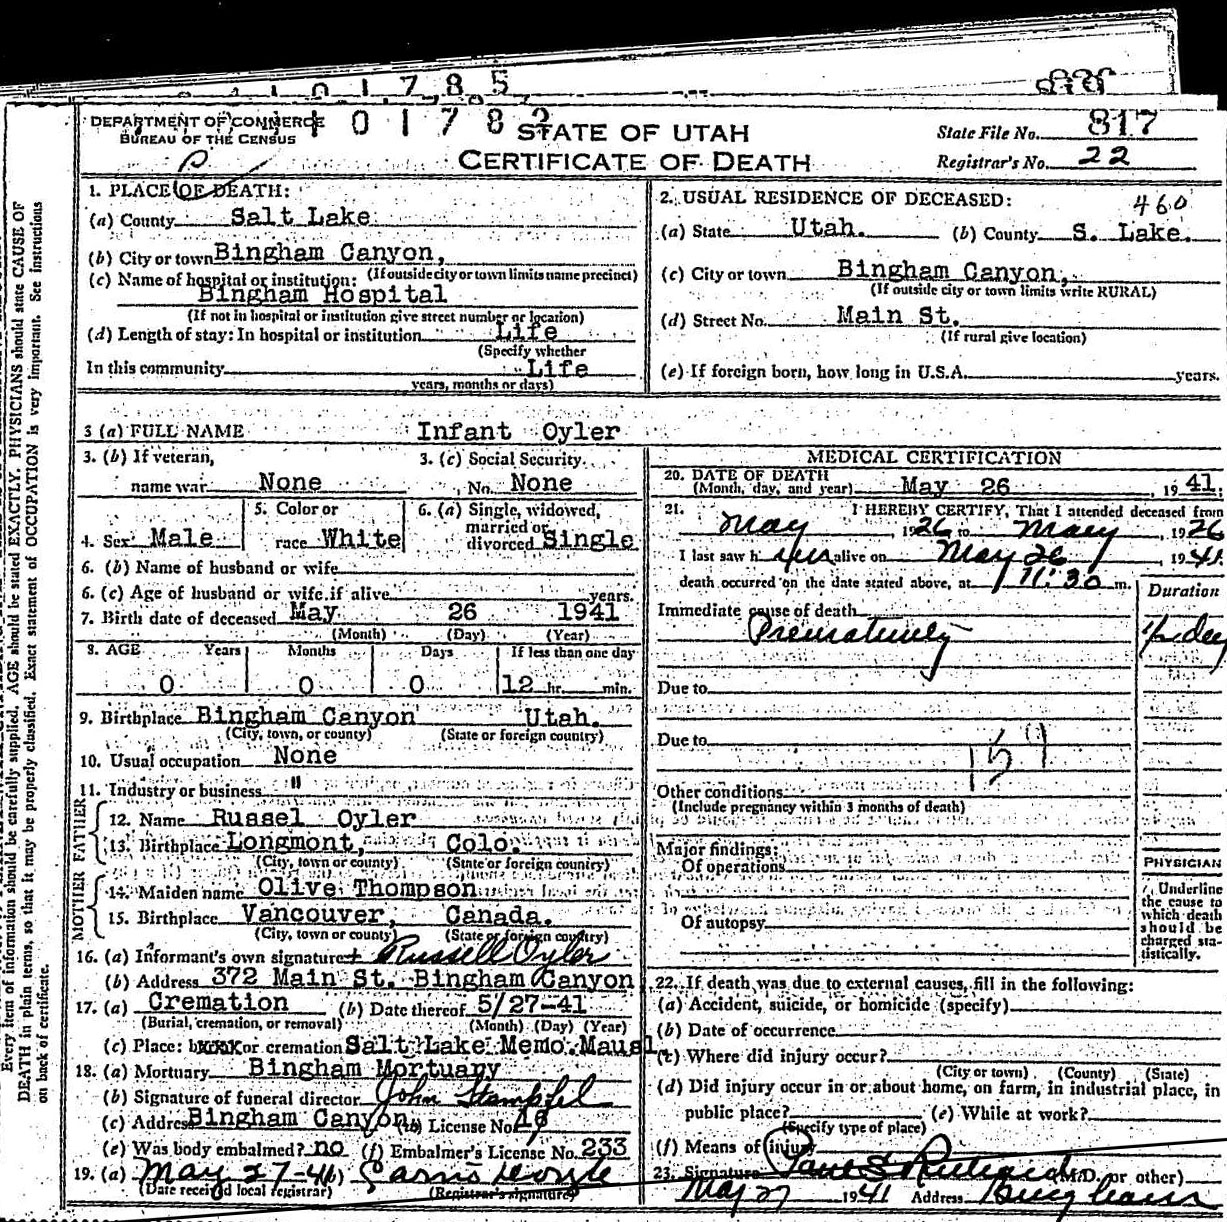 101785
DEPARTMENT OF COMMERCE
BUREAU OF THE CENSUS
101782
STATE OF UTAH
CERTIFICATE OF DEATH
State File No. 817
Registrar's No. 22
1. PLACE OF DEATH:
(a) County Salt Lake
(b) City or town Bingham Canyon,
(If outside city or town limits name precinct)
(c) Name of hospital or institution:
Bingham Hospital
(If not in hospital or institution give street number or location)
(d) Length of stay: In hospital or institution Life
(Specify whether
In this community Life
years, months or days)
2. USUAL RESIDENCE OF DECEASED:
460
(a) State Utah. (b) County S. Lake.
(c) City or town Bingham Canyon,
(If outside city or town limits write RURAL)
(d) Street No. Main St.
(If rural give location)
(e) If foreign born, how long in U.S.A. years.
3 (a) FULL NAME Infant Oyler
3. (b) If veteran,
name war None
3. (c) Social Security
No. None
4. Sex Male
5. Color or
race White
6. (a) Single, widowed,
married or
divorced Single
6. (b) Name of husband or wife
6. (c) Age of husband or wife if alive years.
7. Birth date of deceased May 26 1941
(Month) (Day) (Year)
8. AGE Years Months Days If less than one day
0 0 0 12 hr. min.
9. Birthplace Bingham Canyon Utah.
(City, town, or county) (State or foreign country)
10. Usual occupation None
11. Industry or business "
FATHER
12. Name Russel Oyler
13. Birthplace Longmont, Colo.
(City, town or county) (State or foreign country)
MOTHER
14. Maiden name Olive Thompson
15. Birthplace Vancouver, Canada.
(City, town or county) (State or foreign country)
16. (a) Informant's own signature Russell Oyler
(b) Address 372 Main St. Bingham Canyon
17. (a) Cremation (b) Date thereof 5/27-41
(Burial, cremation, or removal) (Month) (Day) (Year)
(c) Place: or cremation Salt Lake Memo. Mausl
18. (a) Mortuary Bingham Mortuary
(b) Signature of funeral director John Stampfel
(c) Address Bingham Canyon, License No.
(e) Was body embalmed? no (f) Embalmer's License No. 233
19. (a) May 27-41
(Date received local registrar) (Registrar's signature)
MEDICAL CERTIFICATION
20. DATE OF DEATH
(Month, day, and year) May 26, 1941
21. I HEREBY CERTIFY, That I attended deceased from
May 1926 to May, 1926
I last saw h im alive on May 26, 1941.
death occurred on the date stated above, at 11:30 m.
Duration
Immediate cause of death
Prematurity 1/2 day
Due to
Due to
159
Other conditions
(Include pregnancy within 3 months of death)
Major findings:
Of operations
Of autopsy
PHYSICIAN
Underline
the cause to
which death
should be
charged sta-
tistically.
22. If death was due to external causes, fill in the following:
(a) Accident, suicide, or homicide (specify)
(b) Date of occurrence
(c) Where did injury occur?
(City or town) (County) (State)
(d) Did injury occur in or about home, on farm, in industrial place, in
public place? (e) While at work?
(Specify type of place)
(f) Means of injury
23. Signature Paul S Richards (M.D. or other)
May 27 1941 Address Bingham
Every item of information should be carefully supplied. AGE should be stated EXACTLY. PHYSICIANS should state CAUSE OF
DEATH in plain terms, so that it may be properly classified. Exact statement of OCCUPATION is very important. See instructions
on back of certificate.